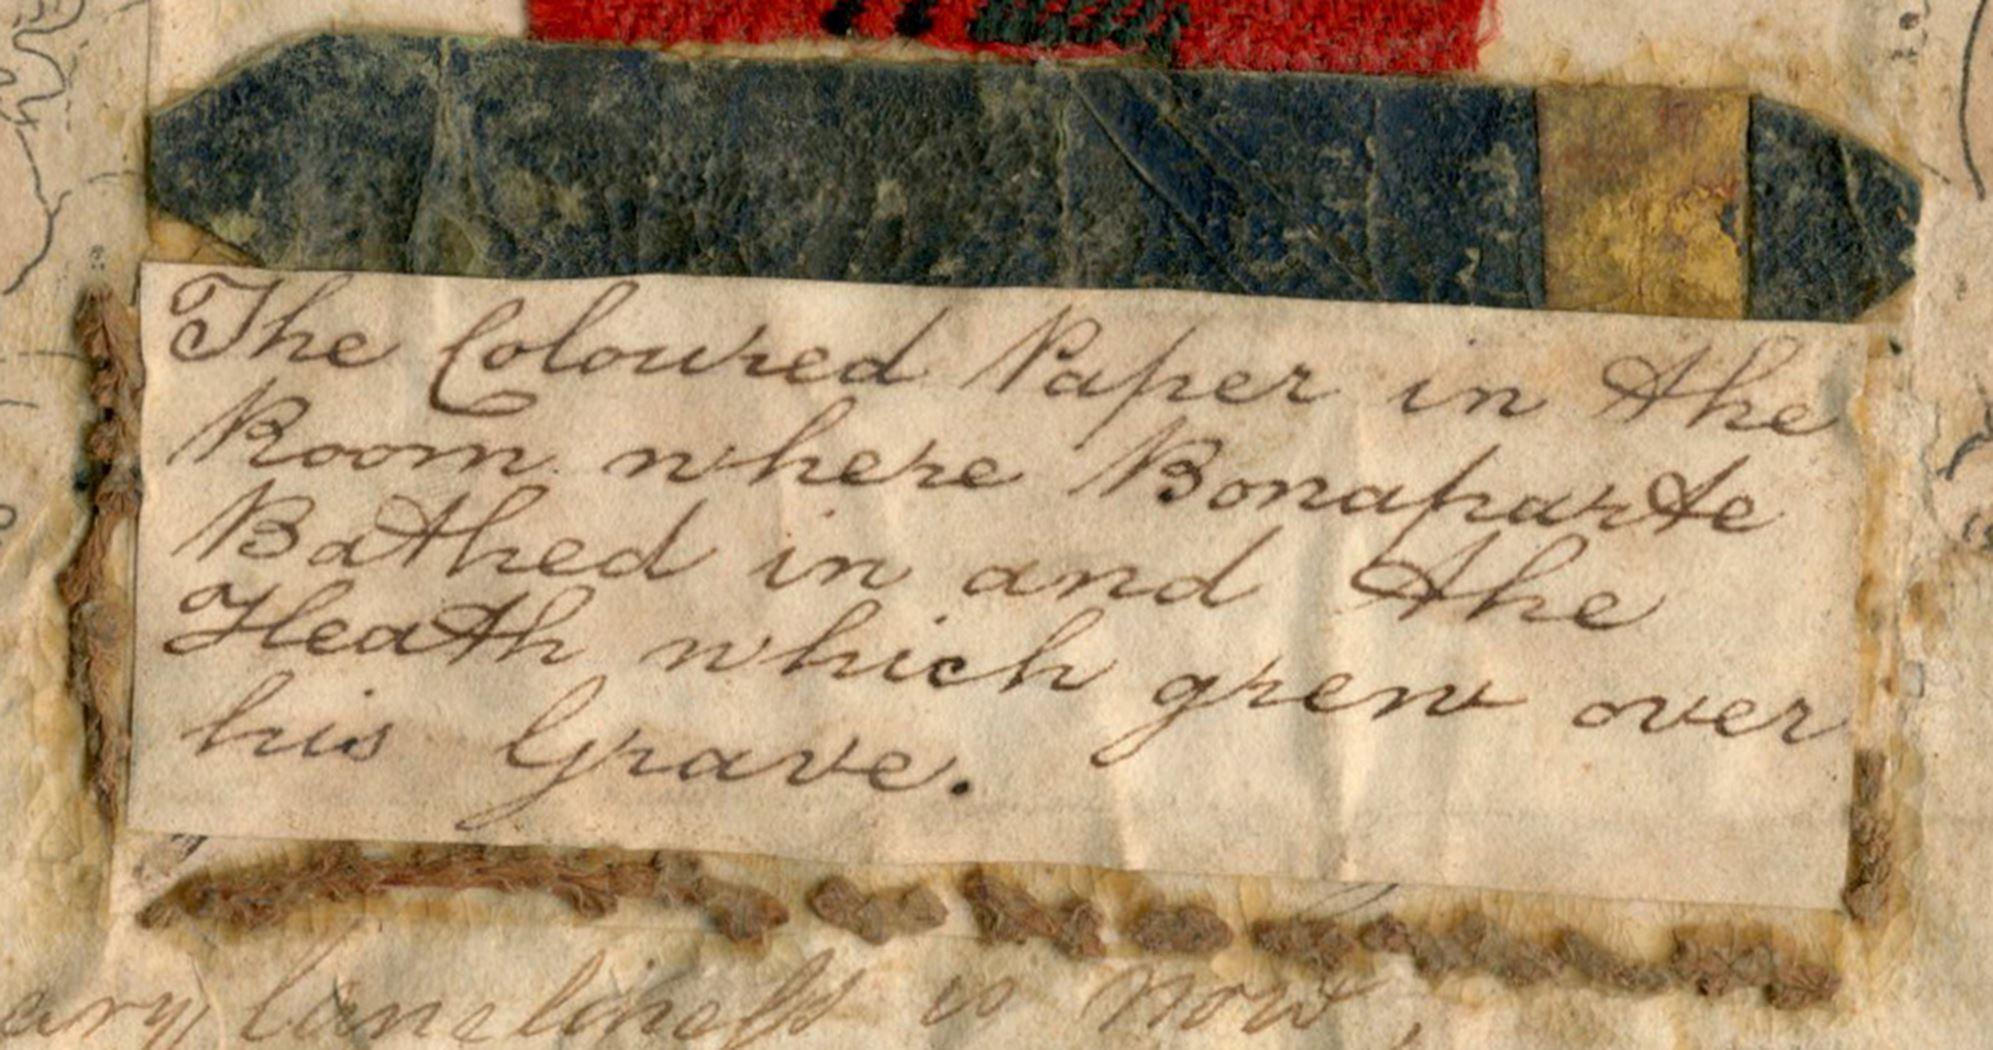 The Coloured Paper in the
Room where Bonaparte
Bathed in and the
Heath which grew over
his Grave.
loneliness is now,